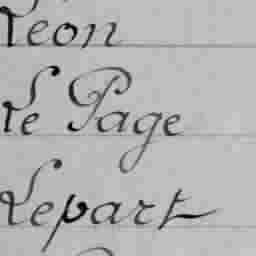 Leon
Le Page
Lepart